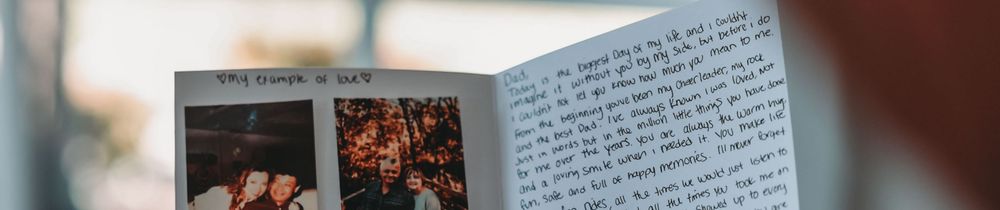 ♡My example of love♡
Dad,
Today is the biggest Day of my life and I couldn't
imagine it without you by my side, but before I do
I couldn't not let you know how much you mean to me.
From the beginning you've been my cheerleader, my rock
and the best Dad. I've always known I was loved, Not
Just in words but in the million little things you have done
for me over the years. You are always the warm hug
and a loving smile when I needed it. You make life
fun, safe and full of happy memories. I'll never forget
rides, all the times we would just listen to
all the times you took me on
showed up to every
are